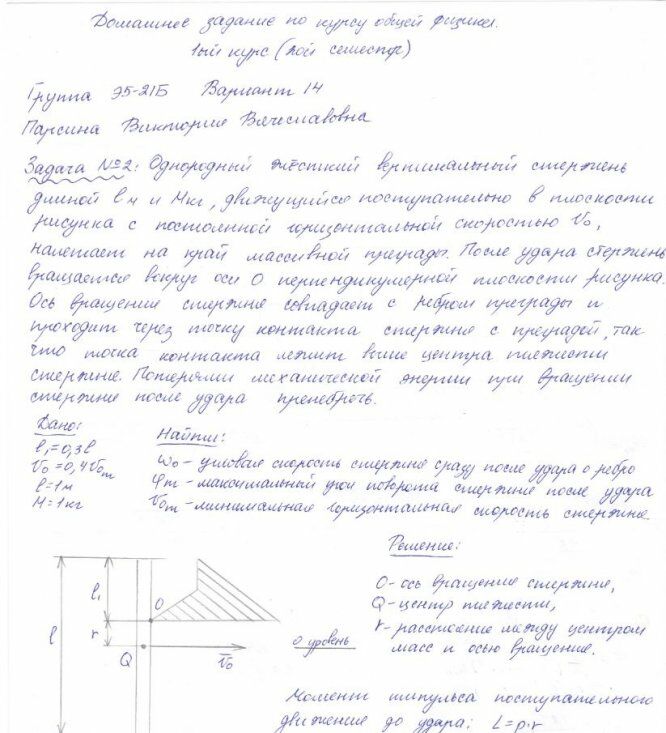 Домашнее задание по курсу общей физики.
1ый курс (2ой семестр)
Группа Э5-21Б Вариант 14
Парсина Виктория Вячеславовна
Задача №2: Однородный жёсткий вертикальный стержень
длиной l м и M кг, движущийся поступательно в плоскости
рисунка с постоянной горизонтальной скоростью V₀,
налетает на край массивной преграды. После удара стержень
вращается вокруг оси О перпендикулярной плоскости рисунка.
Ось вращения стержня совпадает с ребром преграды и
проходит через точку контакта стержня с преградой, так
что точка контакта лежит выше центра тяжести
стержня. Потерями механической энергии при вращении
стержня после удара пренебречь.
Дано:
l₁=0,3l
V₀=0,4V₀m
l=1м
M=1кг
Найти:
ω₀ - угловая скорость стержня сразу после удара о ребро
φm - максимальный угол поворота стержня после удара
V₀m - минимальная горизонтальная скорость стержня.
Решение:
О - ось вращения стержня,
Q - центр тяжести,
r - расстояние между центром
масс и осью вращения.
l
l₁
r
O
Q
V̄₀
0 уровень
Момент импульса поступательного
движения до удара: L=p·r